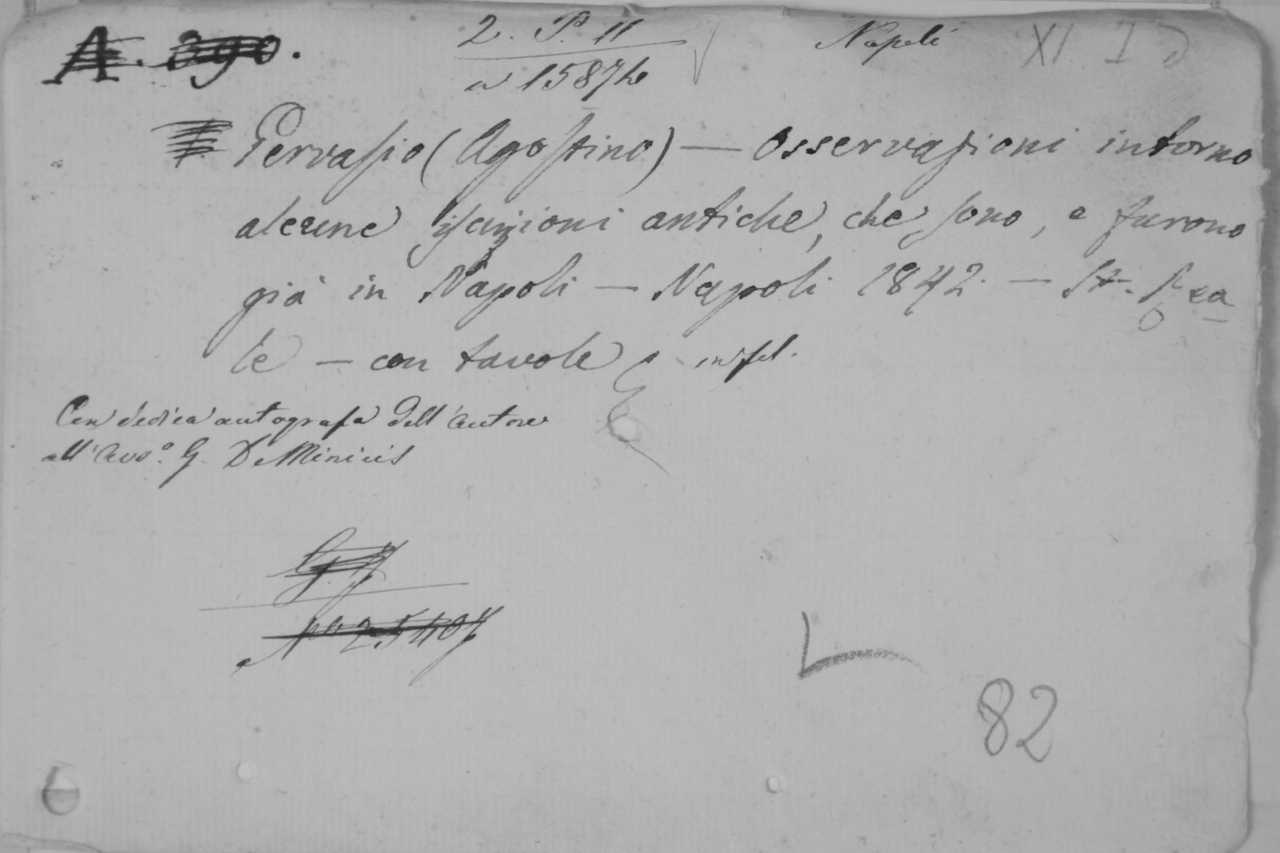 A. 390.
2. P. 11
Napoli
XI I
a 15874
Gervasio (Agostino) — Osservazioni intorno
alcune iscrizioni antiche, che sono, e furono
già in Napoli — Napoli 1842. — St. Rea
le — con tavole in fol.
Con dedica autografa dell'autore
all'Avv.º G. De Minicis
Nº 25407
82